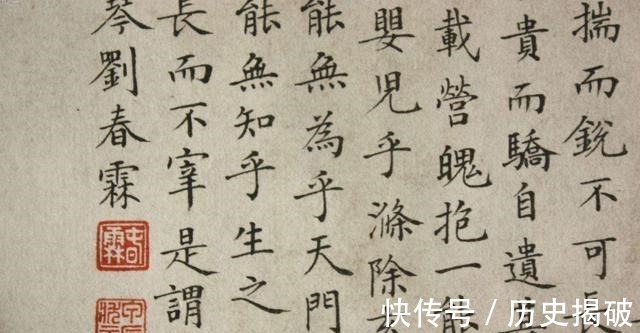 揣而銳不可
貴而驕自遺
載營魄抱一能
嬰兒乎滌除
能無為乎天門
能無知乎生之
長而不宰是謂
劉春霖
春霖
快传号 / 历史揭破